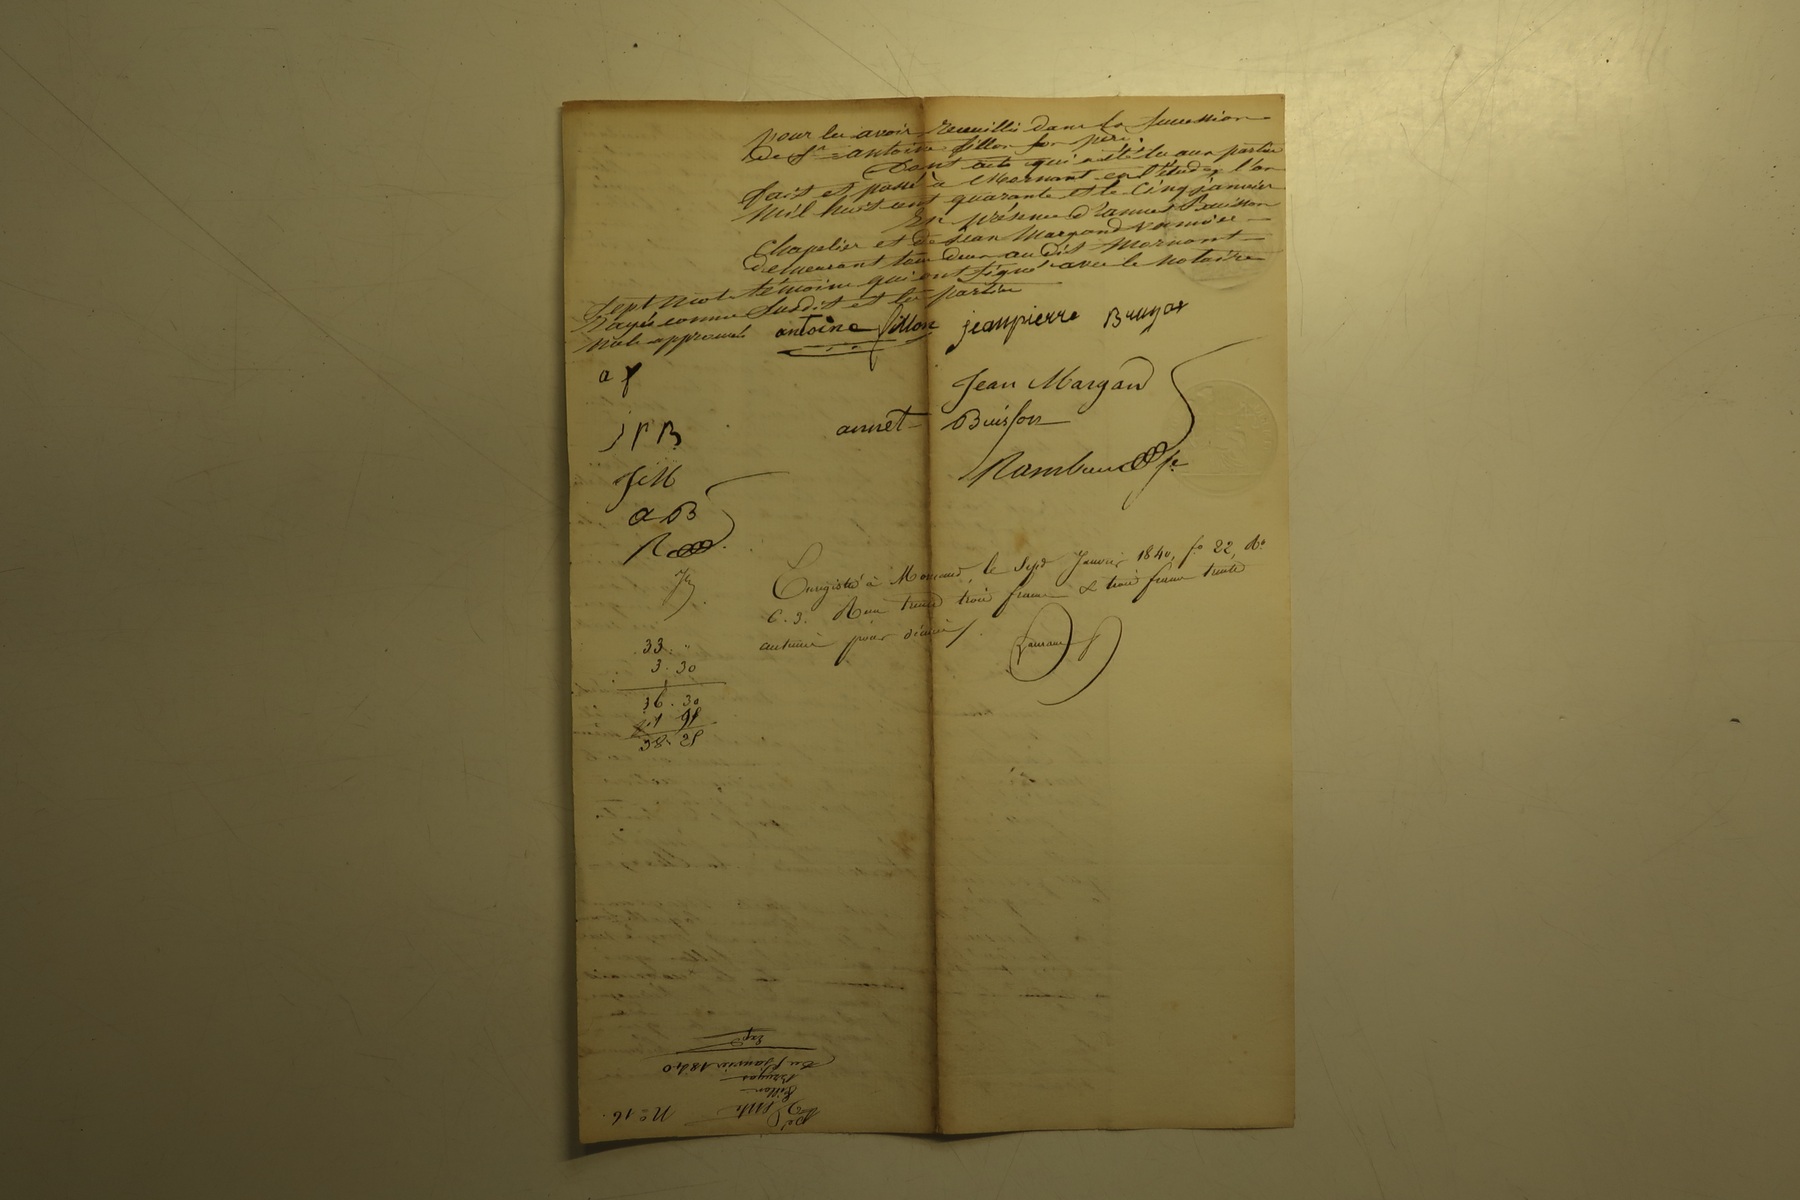 pour les avoir recueillis dans la succession
de Sr antoine fillon son père.
Dont acte qui a été lu aux parties
fait et passé à Mornant en l'étude, l'an
mil huit cent quarante et le cinq janvier
En présence d'annet Buisson
Chapelier et de Jean Margand
demeurant tous deux au dit Mornant
témoins qui ont signé avec le notaire
Sept mots susdit et les parties
Rayés comme
nuls approuvés antoine fillon jeanpierre Bruyas
a f
Jean Margand
J P B annet Buisson
JM
a B
33. "
3. 30
36. 30
1 95
38. 25
Enregistré à Mornant, le sept Janvier 1840, fo 22, Ro
C. 3. Reçu trente trois francs & trois francs trente
centimes pour décime
No 16.
fillon
Bruyas
du 5 Janvier 1840
Expon